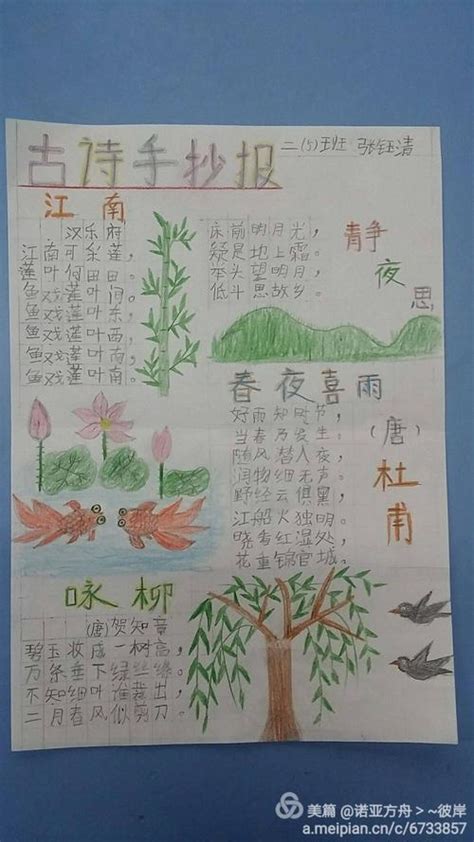 古诗手抄报
二(5)班 张钰清
江南
汉乐府
江南可采莲，
莲叶何田田。
鱼戏莲叶间。
鱼戏莲叶东，
鱼戏莲叶西，
鱼戏莲叶南，
鱼戏莲叶南。
静夜思
床前明月光，
疑是地上霜。
举头望明月，
低斗思故乡。
春夜喜雨
(唐)杜甫
好雨知时节，
当春乃发生。
随风潜入夜，
润物细无声。
野经云俱黑，
江船火独明。
晓看红湿处，
花重锦官城。
咏柳
(唐)贺知章
碧玉妆成一树高，
万条垂下绿丝绦。
不知细叶谁裁出，
二月春风似剪刀。
美篇 @诺亚方舟＞~彼岸
a.meipian.cn/c/6733857